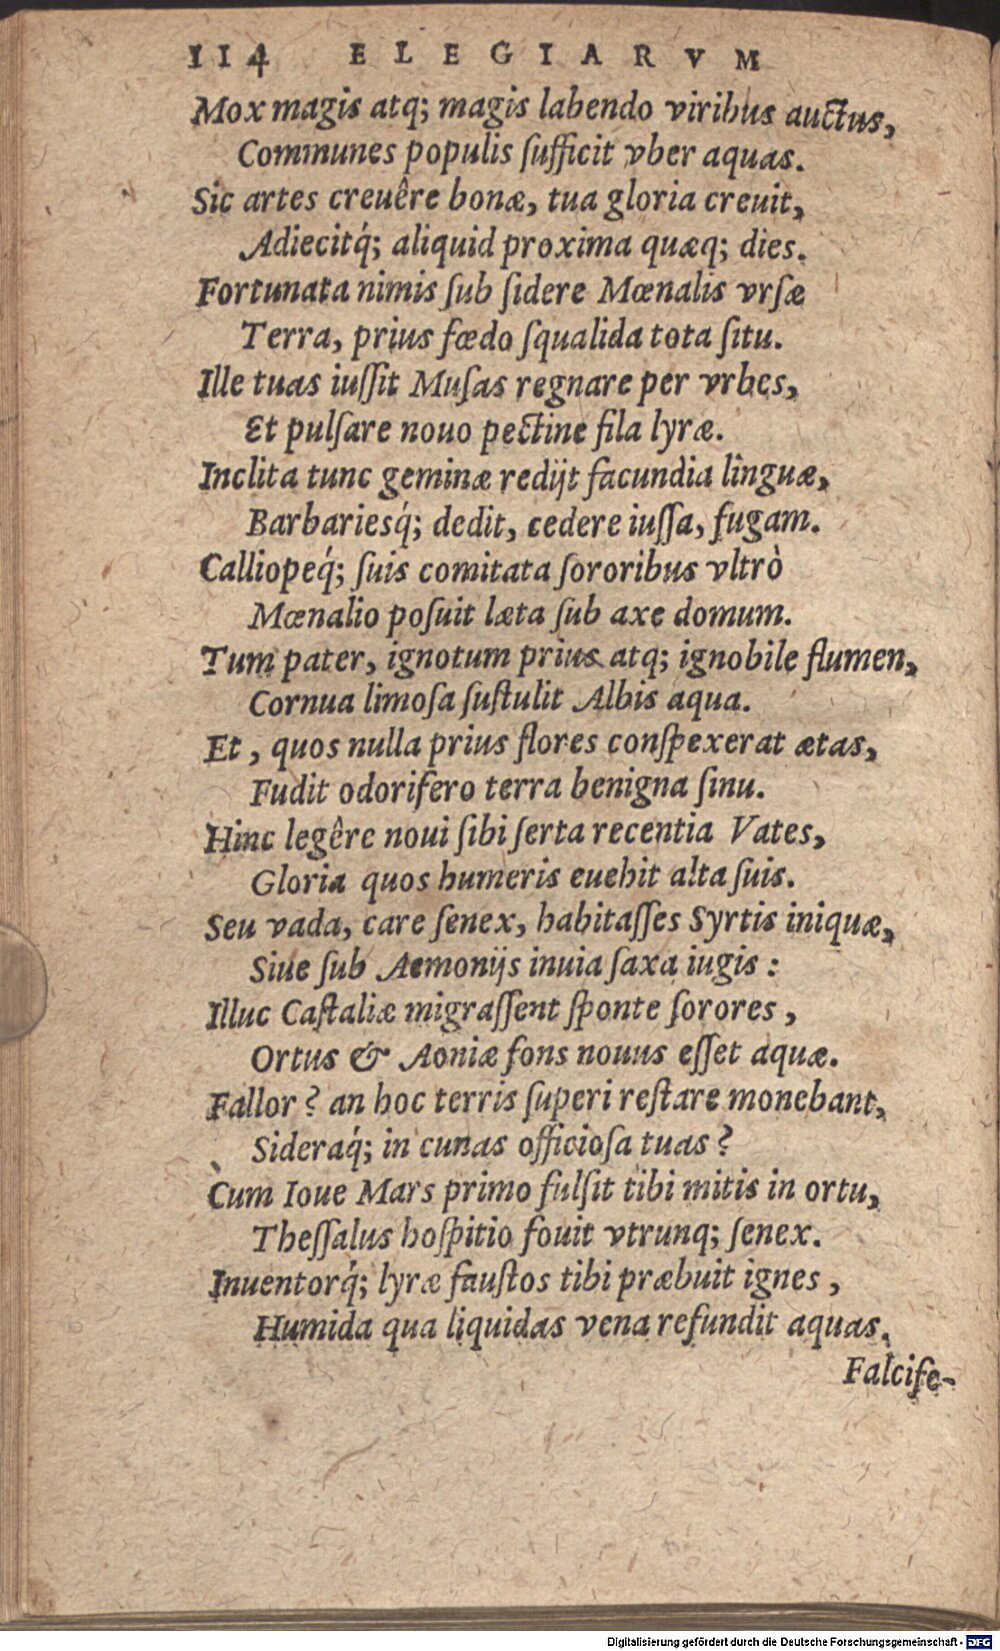 114 ELEGIARVM
Mox magis atq; magis labendo viribus auctus,
Communes populis ſufficit vber aquas.
Sic artes creuêre bonæ, tua gloria creuit,
Adiecitq́; aliquid proxima quæq; dies.
Fortunata nimis ſub ſidere Mœnalis vrſæ
Terra, prius fœdo ſqualida tota ſitu.
Ille tuas iuſſit Muſas regnare per vrbes,
Et pulſare nouo pectine fila lyræ.
Inclita tunc geminæ redijt facundia linguæ,
Barbariesq́; dedit, cedere iuſſa, fugam.
Calliopeq́; ſuis comitata ſororibus vltrò
Mœnalio poſuit læta ſub axe domum.
Tum pater, ignotum prius atq; ignobile flumen,
Cornua limoſa ſuſtulit Albis aqua.
Et, quos nulla prius flores conſpexerat ætas,
Fudit odorifero terra benigna ſinu.
Hinc legêre noui ſibi ſerta recentia Vates,
Gloria quos humeris euehit alta ſuis.
Seu vada, care ſenex, habitaſſes Syrtis iniquæ,
Siue ſub Aemonijs inuia ſaxa iugis:
Illuc Caſtaliæ migraſſent ſponte ſorores,
Ortus & Aoniæ fons nouus eſſet aquæ.
Fallor? an hoc terris ſuperi reſtare monebant,
Sideraq́; in cunas officioſa tuas?
Cùm Ioue Mars primo fulſit tibi mitis in ortu,
Theſſalus hoſpitio fouit vtrunq; ſenex.
Inuentorq́; lyræ fauſtos tibi præbuit ignes,
Humida qua liquidas vena refundit aquas.
Falcife-
Digitalisierung gefördert durch die Deutsche Forschungsgemeinschaft - DFG